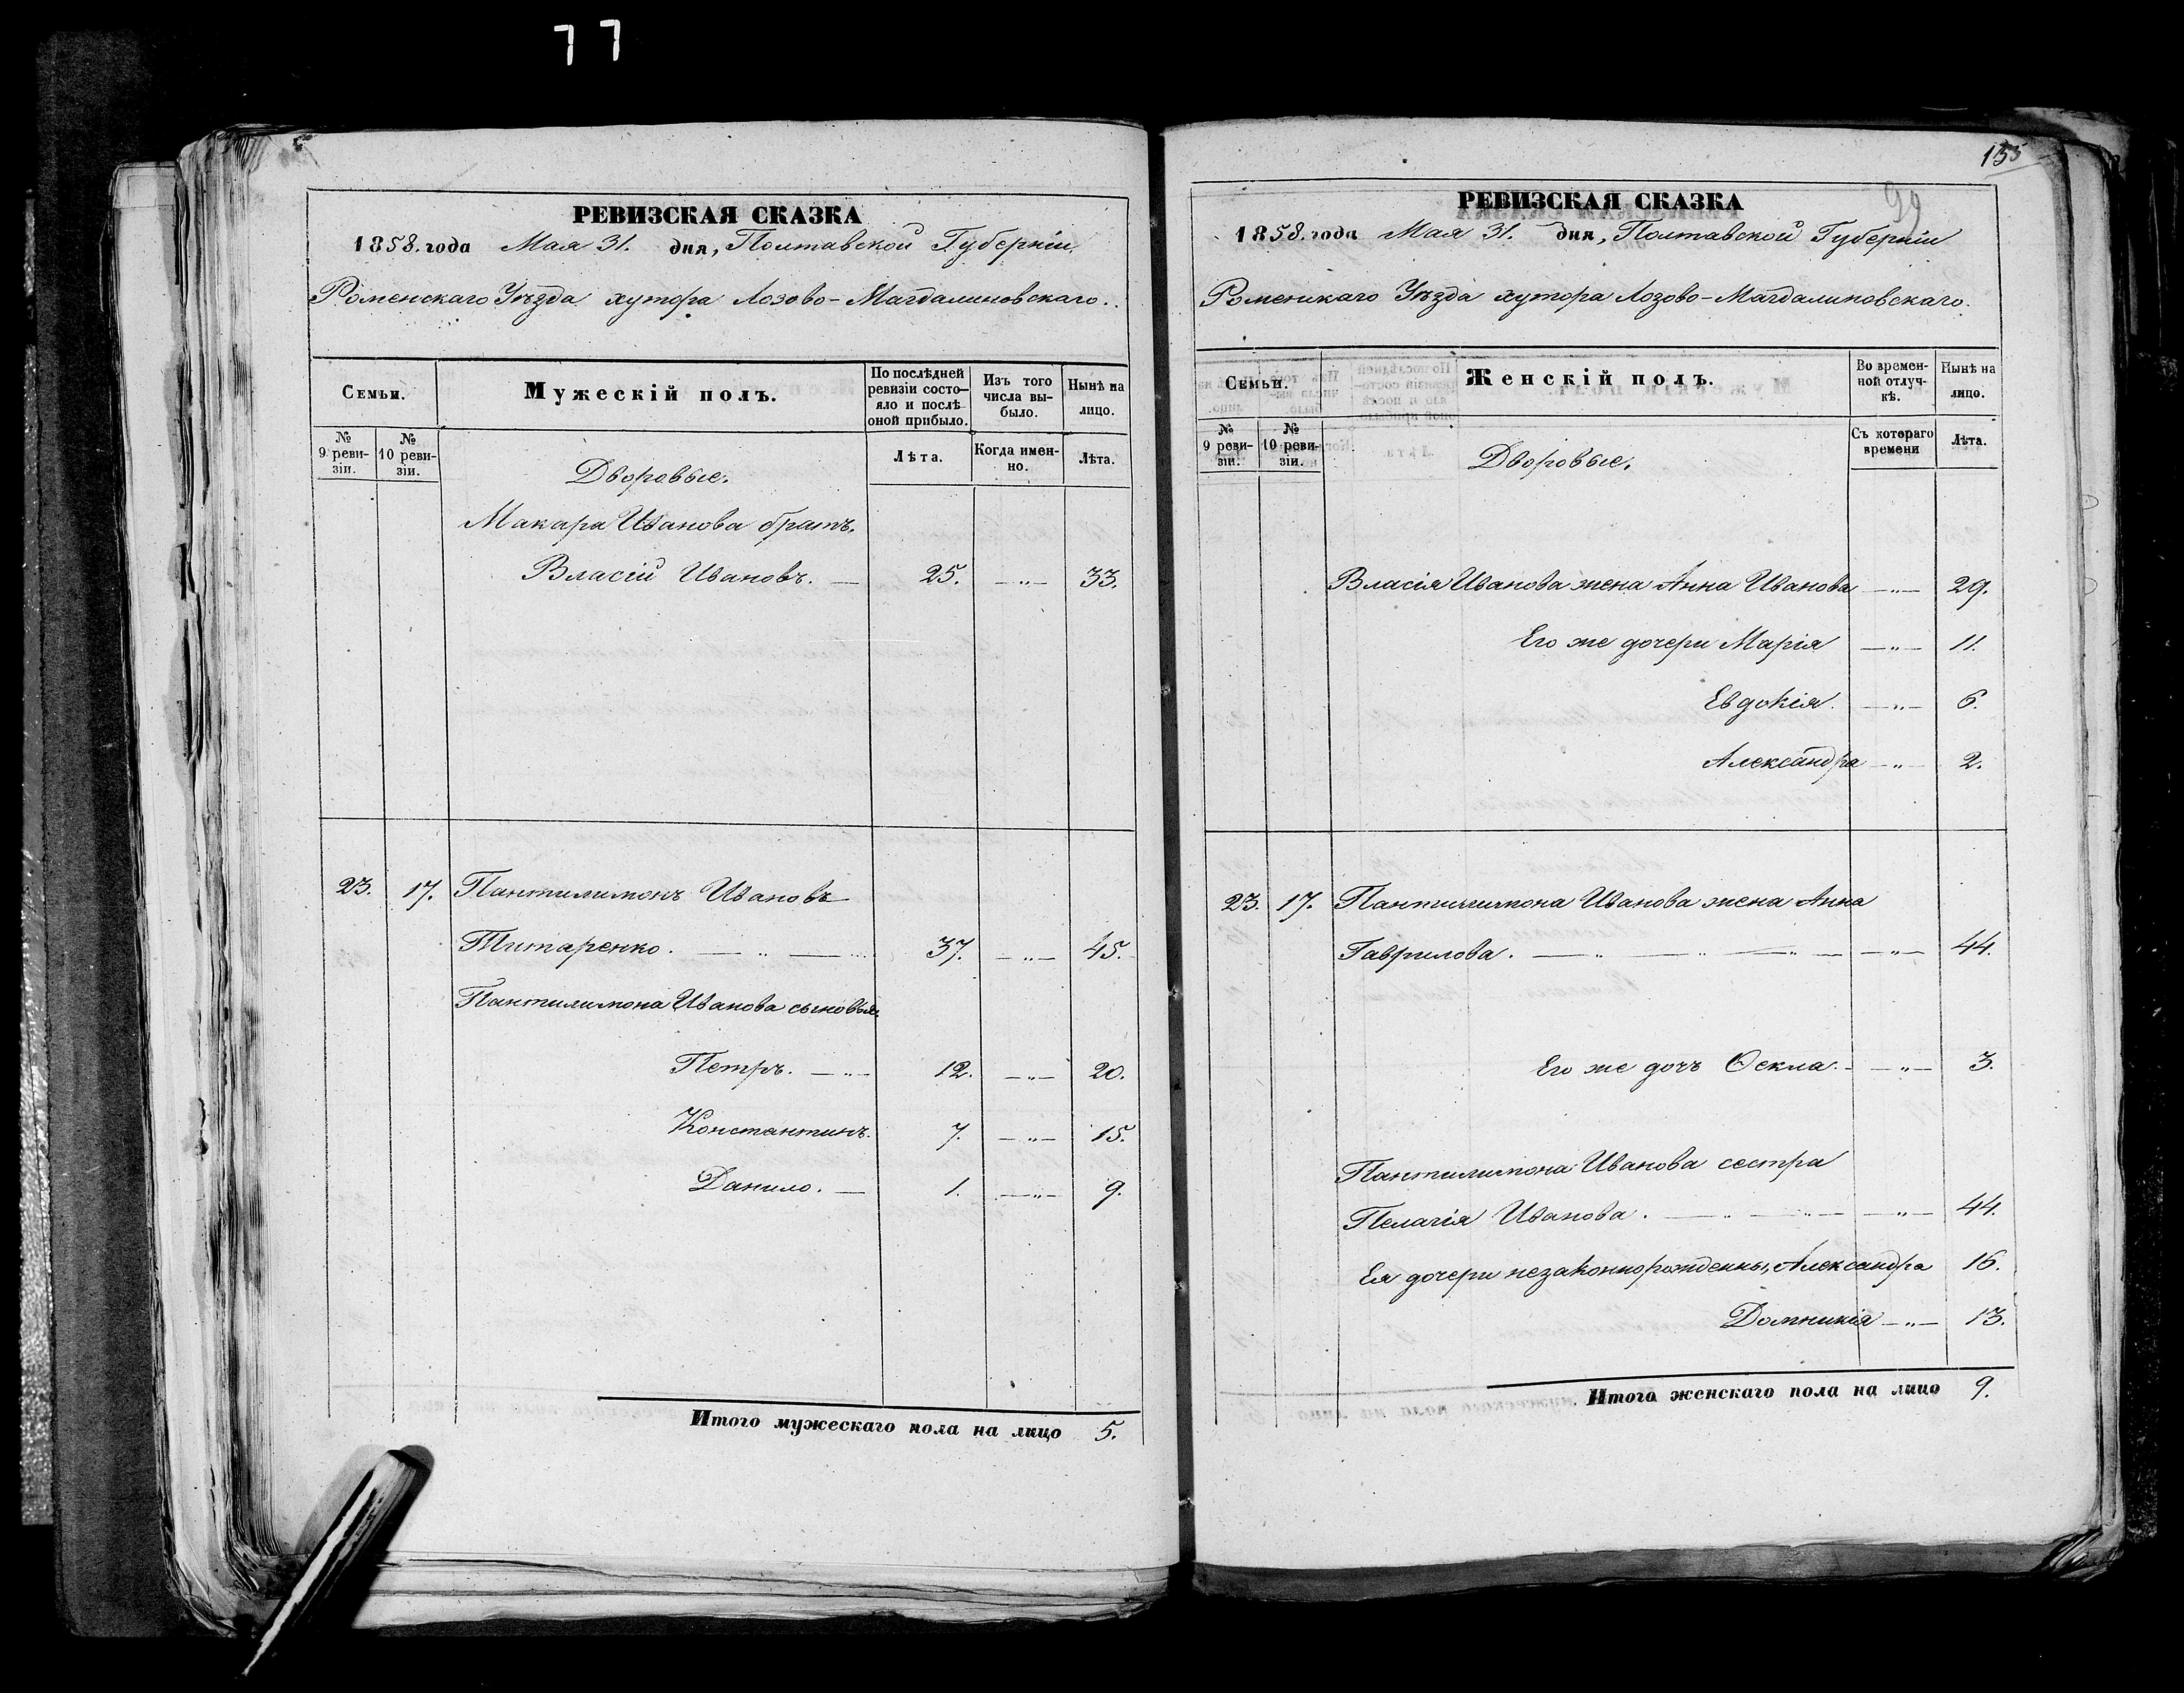 77
РЕВИЗСКАЯ СКАЗКА
1858. года Мая 31. дня, Полтавской Губерніи
Роменскаго Уѣзда хутора Лозово-Магдалиновскаго.
Семьи.
Мужескій полъ.
По послѣдней ревизіи состо-
яло и послѣ оной прибыло.
Изъ того числа вы-
было.
Нынѣ на лицо.
№ 9 реви-
зіи.
№ 10 реви-
зіи.
Лѣта.
Когда имен-
но.
Лѣта.
Дворовые.
Макара Иванова братъ.
Власій Ивановъ. — 25. —„— 33.
23. 17. Пантилимонъ Ивановъ
Титаренко. — „ — 37. —„— 45.
Пантилимона Иванова сыновья.
Петръ. — 12. —„— 20.
Константинъ. 7. —„— 15.
Данило. — 1. —„— 9.
Итого мужескаго пола на лицо 5.
155
99
РЕВИЗСКАЯ СКАЗКА
1858. года Мая 31. дня, Полтавской Губерніи
Роменскаго Уѣзда хутора Лозово-Магдалиновскаго.
Семьи.
Женскій полъ.
Во времен-
ной отлуч-
кѣ.
Нынѣ на лицо.
№ 9 реви-
зіи.
№ 10 реви-
зіи.
Съ котораго времени
Лѣта.
Дворовые.
Власія Иванова жена Анна Иванова —„— 29.
Его же дочери Марія —„— 11.
Евдокія. —„— 6.
Александра —„— 2.
23. 17. Пантилимона Иванова жена Анна
Гаврилова. — „ — „ — „ — —„— 44.
Его же дочь Ѳекла. —„— 3.
Пантилимона Иванова сестра
Пелагія Иванова. — „ — „ — —„— 44.
Ея дочери незаконнорожденны, Александра 16.
Домникія —„— 13.
Итого женскаго пола на лицо 9.